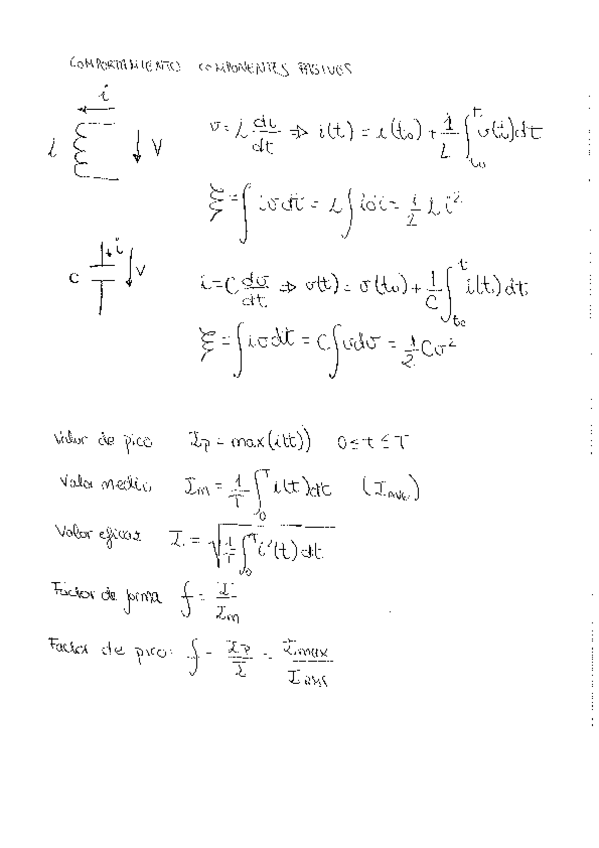 COMPORTAMIENTO COMPONENTES PASIVOS
i
L
V
v = L di/dt ⇒ i(t) = i(t₀) + 1/L ∫_{t₀}^{t} v(t)dt
ξ = ∫ i v dt = L ∫ i di = 1/2 L i²
i
C
V
i = C dv/dt ⇒ v(t) = v(t₀) + 1/C ∫_{t₀}^{t} i(t) dt
ξ = ∫ i v dt = C ∫ v dv = 1/2 C v²
Valor de pico Ip = max(i(t)) 0 ≤ t ≤ T
Valor medio Im = 1/T ∫_0^T i(t) dt (I_ave)
Valor eficaz I = √(1/T ∫_0^T i²(t) dt)
Factor de forma f = I/Im
Factor de pico: f = Ip/I = Imax/Irms